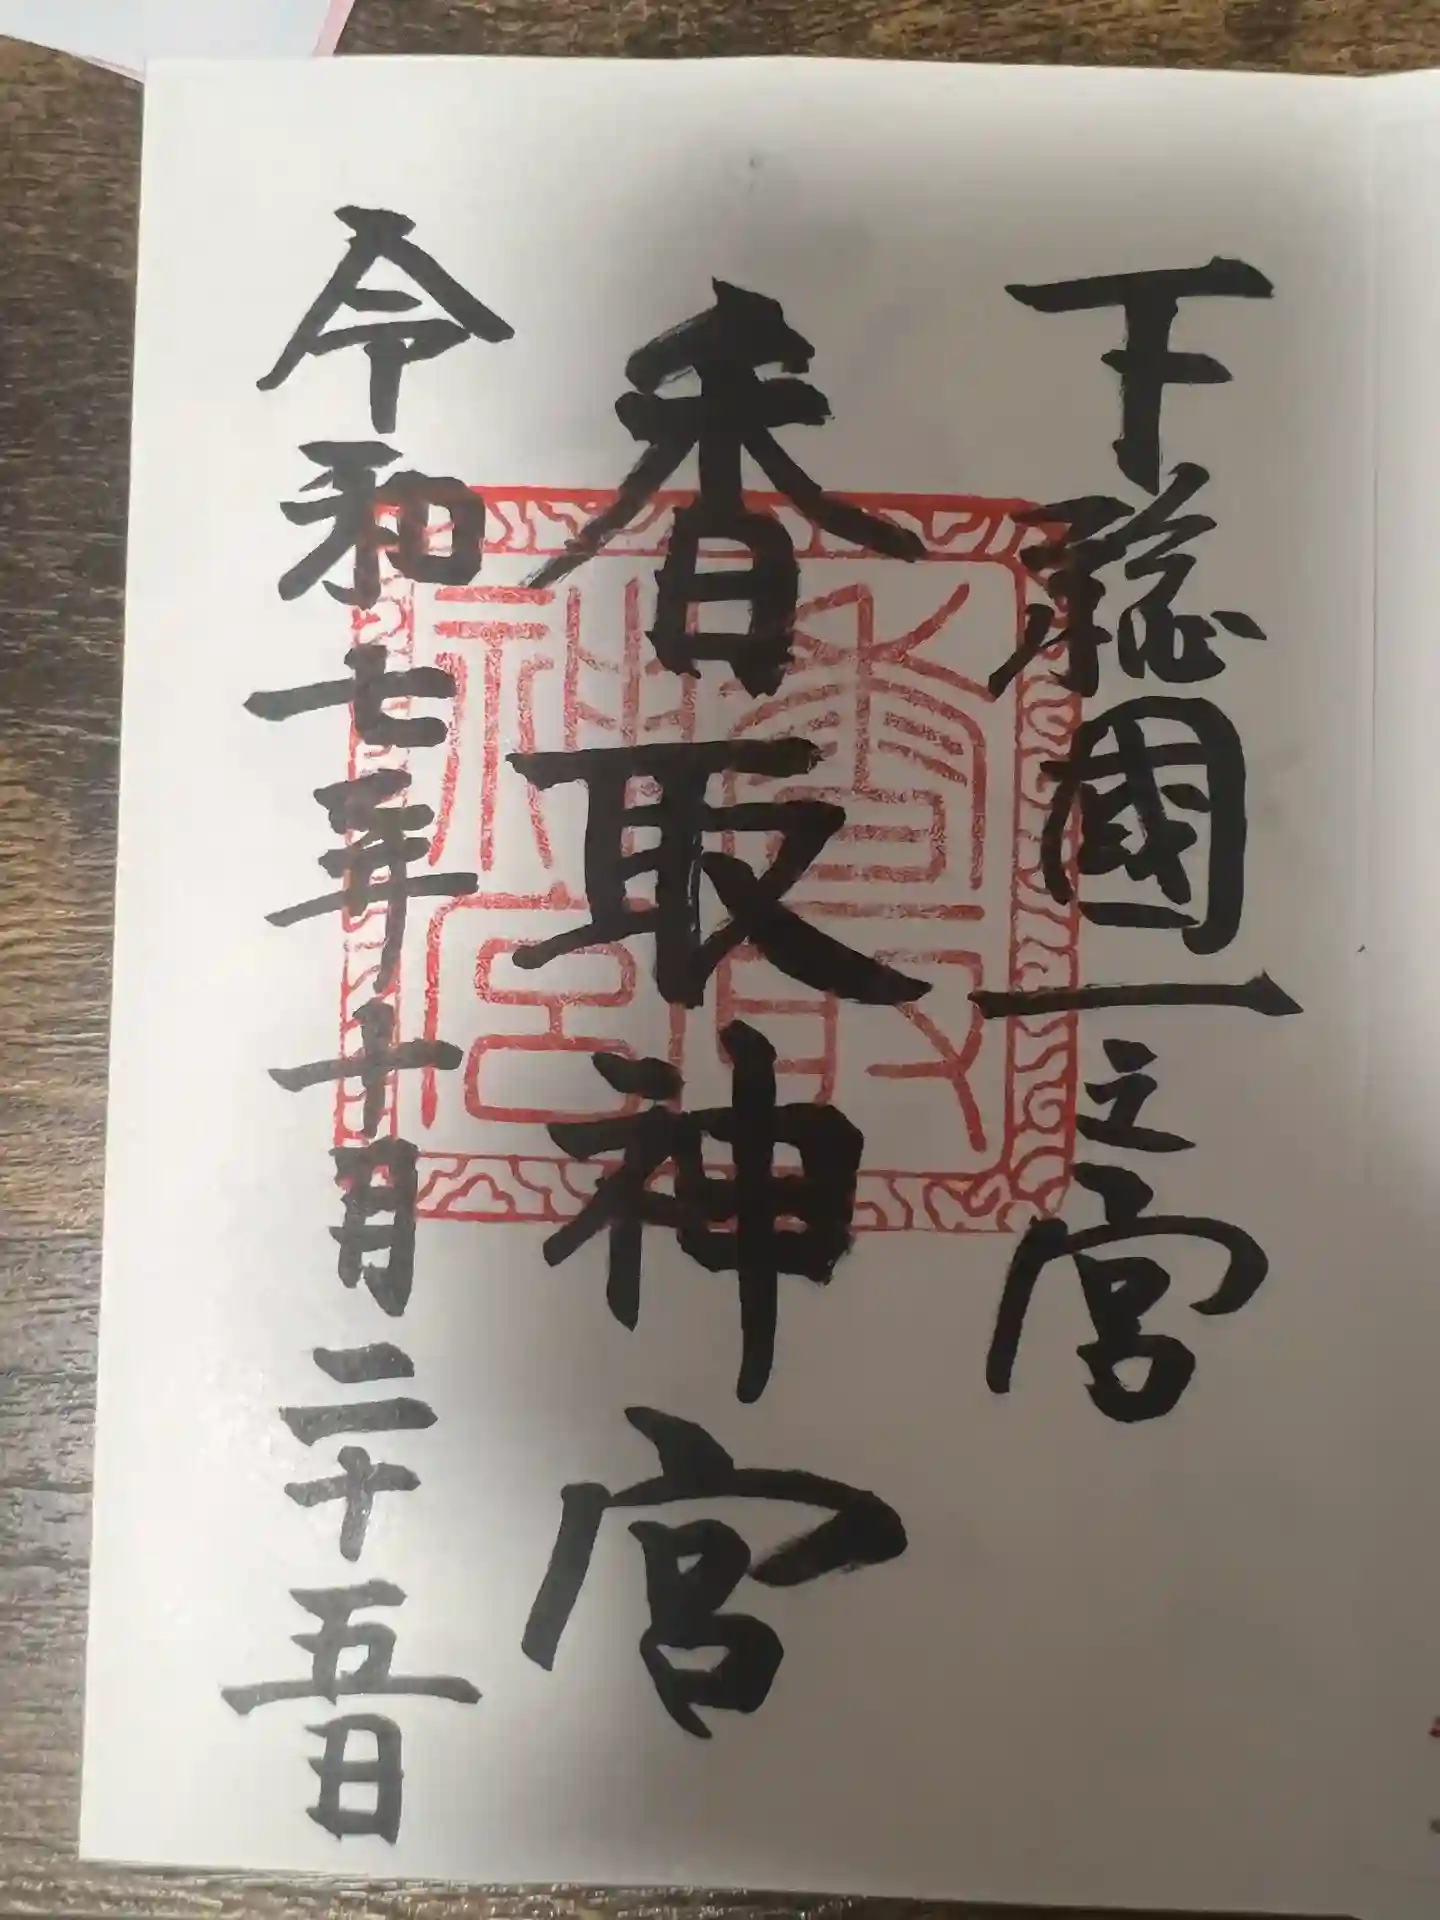 下総國一之宮
香取神宮
令和七年十月二十五日
香取神宮